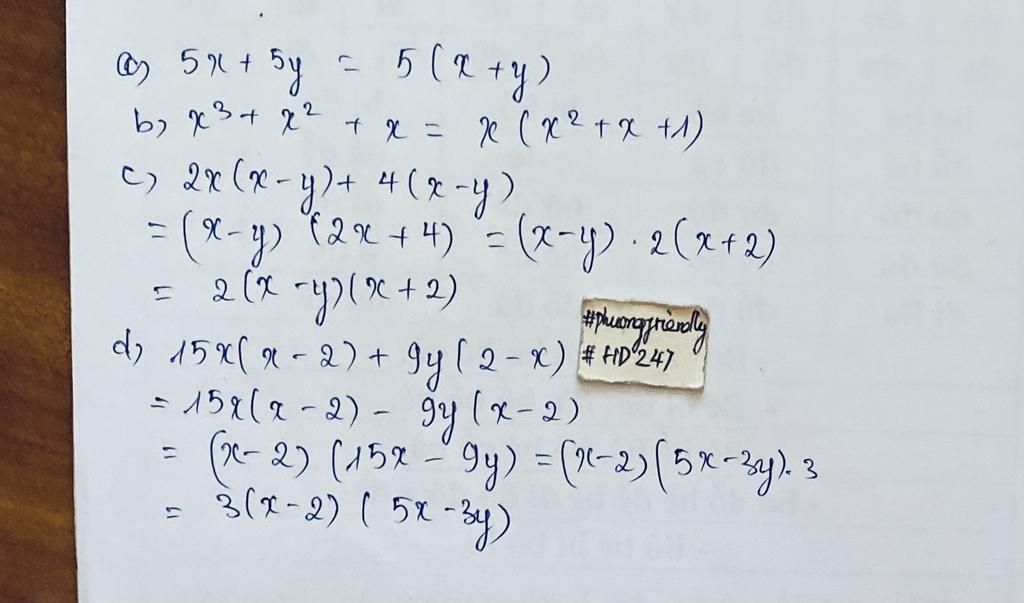 a) 5x + 5y = 5(x+y)
b) x³ + x² + x = x(x² + x + 1)
c) 2x(x-y) + 4(x-y)
= (x-y) (2x + 4) = (x-y) . 2(x+2)
= 2(x-y)(x+2)
#phuongfriendly
d) 15x(x-2) + 9y(2-x)
# HD247
= 15x(x-2) - 9y(x-2)
= (x-2) (15x - 9y) = (x-2)(5x-3y).3
= 3(x-2) (5x-3y)